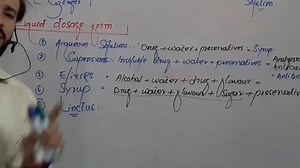 Liquid dosage form
① Aqueous Solution:- Drug + water + preservatives - Syrup
② Suspensions:- Insoluble Drug + water + preservatives =
③ Elixirs = Alcohol + water + drug + flavour =
④ Syrup = Drug + water + flavour + Sugar + preservative
⑤ Linctus:-